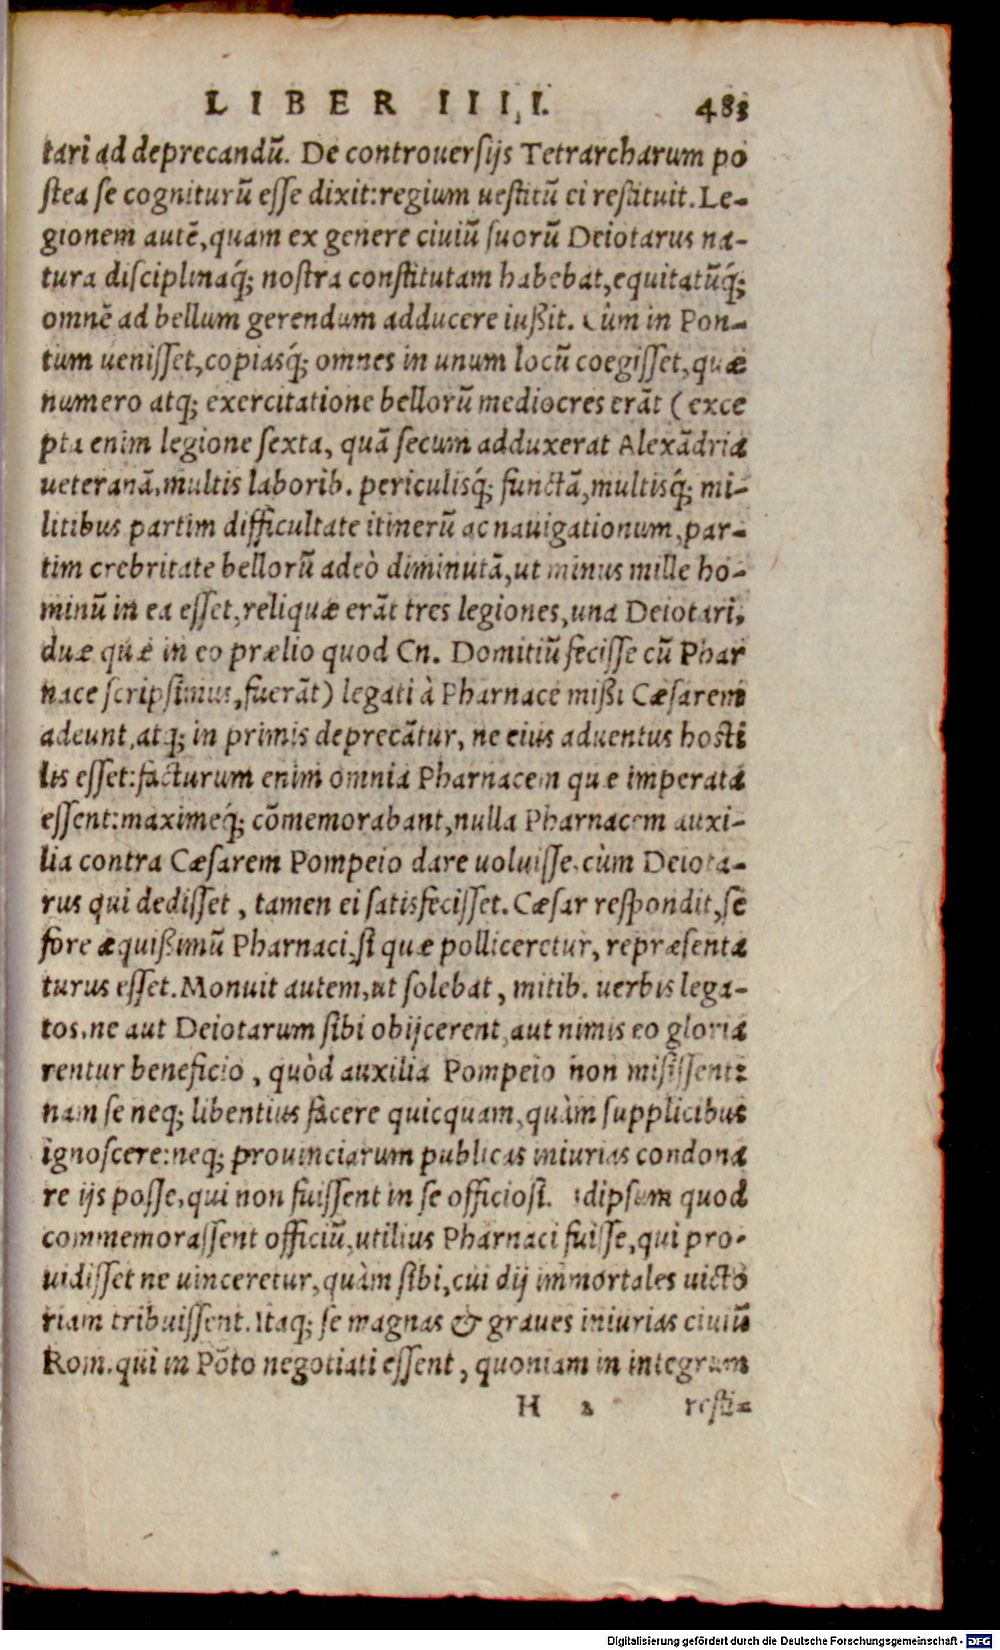 LIBER IIII. 483
tari ad deprecandũ. De controuersijs Tetrarcharum po
stea se cogniturũ esse dixit: regium uestitũ ei restituit. Le-
gionem autẽ, quam ex genere ciuiũ suorũ Deiotarus na-
tura disciplinaq́; nostra constitutam habebat, equitatũq́;
omnẽ ad bellum gerendum adducere iußit. Cùm in Pon-
tum uenisset, copiasq́; omnes in unum locũ coegisset, quæ
numero atq; exercitatione bellorũ mediocres erãt (exce
pta enim legione sexta, quã secum adduxerat Alexãdria
ueteranã, multis laborib. periculisq́; functã, multisq́; mi-
litibus partim difficultate itinerũ ac nauigationum, par-
tim crebritate bellorũ adeò diminutã, ut minus mille ho-
minũ in ea esset, reliquæ erãt tres legiones, una Deiotari,
duæ quæ in eo prælio quod Cn. Domitiũ fecisse cũ Phar
nace scripsimus, fuerãt) legati à Pharnace mißi Cæsarem
adeunt, atq; in primis deprecãtur, ne eius aduentus hosti
lis esset: facturum enim omnia Pharnacem quæ imperata
essent: maximeq́; cõmemorabant, nulla Pharnacem auxi-
lia contra Cæsarem Pompeio dare uoluisse, cùm Deiota-
rus qui dedisset, tamen ei satisfecisset. Cæsar respondit, se
fore æquißimũ Pharnaci, si quæ polliceretur, repræsenta
turus esset. Monuit autem, ut solebat, mitib. uerbis lega-
tos, ne aut Deiotarum sibi obijcerent, aut nimis eo gloria
rentur beneficio, quòd auxilia Pompeio non misissent:
nam se neq; libentius facere quicquam, quàm supplicibus
ignoscere: neq; prouinciarum publicas iniurias condona
re ijs posse, qui non fuissent in se officiosi. idipsum quod
commemorassent officiũ, utilius Pharnaci fuisse, qui pro-
uidisset ne uinceretur, quàm sibi, cui dij immortales uicto
riam tribuissent. Itaq; se magnas & graues iniurias ciuiũ
Rom. qui in Põto negotiati essent, quoniam in integrum
H 2 resti-
Digitalisierung gefördert durch die Deutsche Forschungsgemeinschaft - DFG